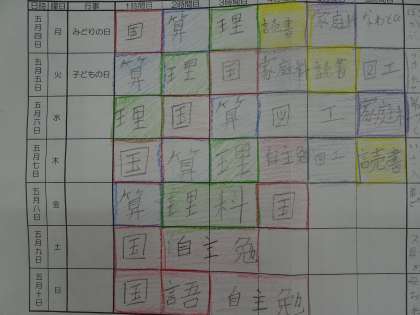 月日 曜日 行事 1時間目 2時間目 3時間目
五月四日 月 みどりの日 国 算 理 読書 家庭科 なわとび
五月五日 火 子どもの日 算 理 国 家庭科 読書 図工
五月六日 水 理 国 算 図 工 家庭科
五月七日 木 国 算 理 自主勉 図工 読書
五月八日 金 算 理 科 国
五月九日 土 国 自主勉
五月十日 日 国 語 自主勉